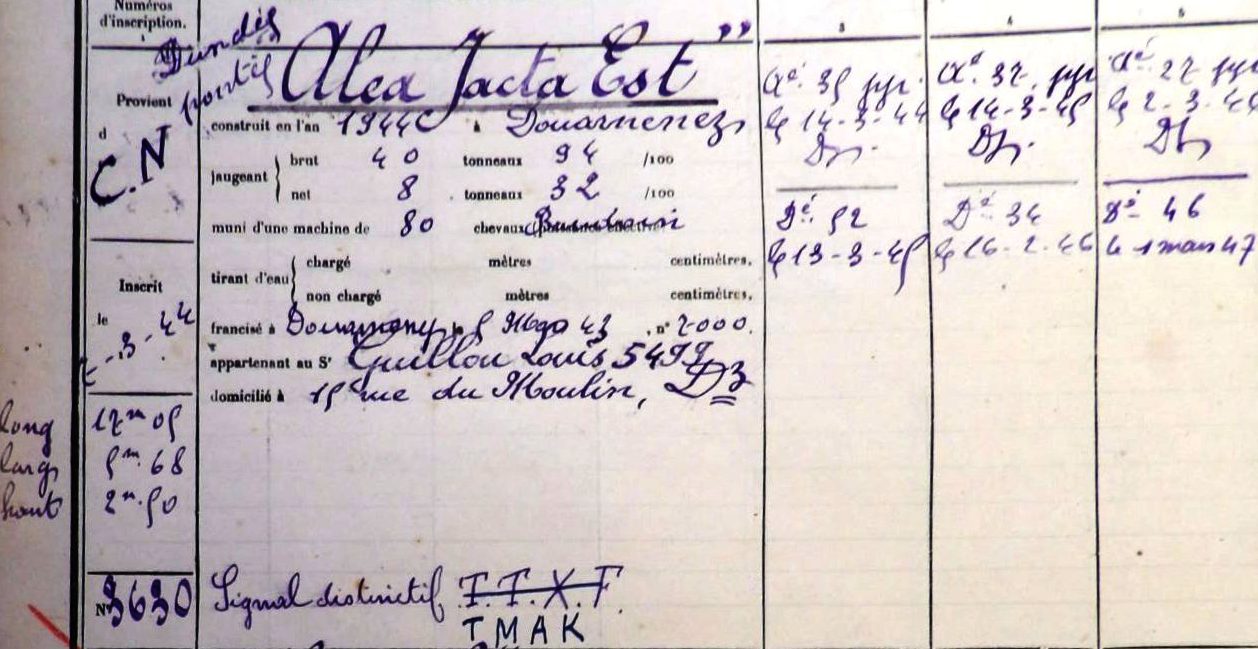 Numéros
d'inscription.
1
3
4
5
Dundée
Provient
d
C.N
Inscrit
le
-3-44
long 17m 05
larg 5m 68
haut 2m.50
N° 3630
Alea Jacta Est"
construit en l'an 1944 à Douarnenez
jaugeant
brut 40 tonneaux 94 /100
net 8 tonneaux 32 /100
muni d'une machine de 80 chevaux Baudouin
tirant d'eau
chargé mètres centimètres.
non chargé mètres centimètres.
francisé à Douarnenez le 5 43, n° 2000.
appartenant au Sr Guillou Louis 5499
domicilié à 15 rue du Moulin, Dz
Signal distinctif T.T.X.F.
TMAK
Aé. 35
le 14-3-44
Dz.
Dé. 52
le 13-3-45
Aé. 37
le 14-3-45
Dz.
Dé. 34
le 16-2-46
Aé. 27
le 2-3-46
Dz
Dé 46
le 1 mars 47